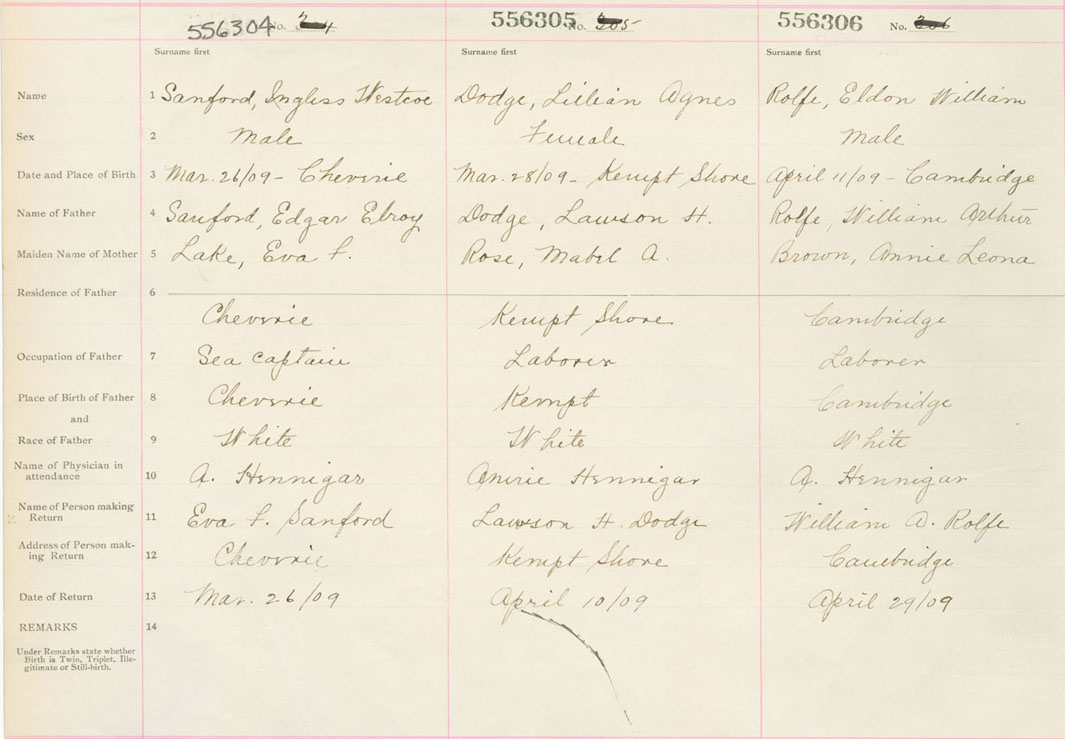 556304 No. 304 556305 No. 305 556306 No. 306
Surname first Surname first Surname first
Name 1 Sanford, Ingliss Westcoe Dodge, Lillian Agnes Rolfe, Eldon William
Sex 2 Male Female Male
Date and Place of Birth 3 Mar. 26/09 - Cheverie Mar. 28/09 - Kempt Shore April 11/09 - Cambridge
Name of Father 4 Sanford, Edgar Elroy Dodge, Lawson H. Rolfe, William Arthur
Maiden Name of Mother 5 Lake, Eva F. Rose, Mabel A. Brown, Annie Leona
Residence of Father 6
Cheverie Kempt Shore Cambridge
Occupation of Father 7 Sea Captain Laborer Laborer
Place of Birth of Father 8 Cheverie Kempt Cambridge
and
Race of Father 9 White White White
Name of Physician in
attendance 10 A. Hennigar Hennigar A. Hennigar
Name of Person making
Return 11 Eva F. Sanford Lawson H. Dodge William A. Rolfe
Address of Person mak-
ing Return 12 Cheverie Kempt Shore Cambridge
Date of Return 13 Mar. 26/09 April 10/09 April 29/09
REMARKS 14
Under Remarks state whether
Birth is Twin, Triplet, Ille-
gitimate or Still-birth.